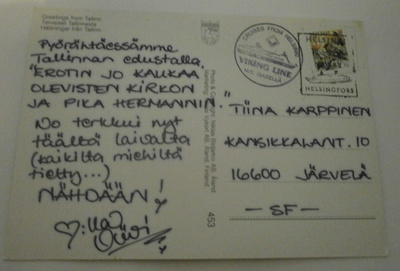 Greetings from Tallinn
Terveiset Tallinnasta
Hälsningar från Tallinn
Pyöräntäessämme
Tallinnan edustalla,
"EROTIN JO KAUKAA
OLEVISTEN KIRKON
JA PIKA HERMANNIN."
No terkkui nyt
täältä laivalta
(kaikilta miehiltä
tietty...)
NÄHDÄÄN!
453
CRUISES FROM HELSINKI
VIKING LINE
M/S ISABELLA
HELSINGFORS
TIINA KARPPINEN
KANSIKKALANT. 10
16600 JÄRVELÄ
- SF -